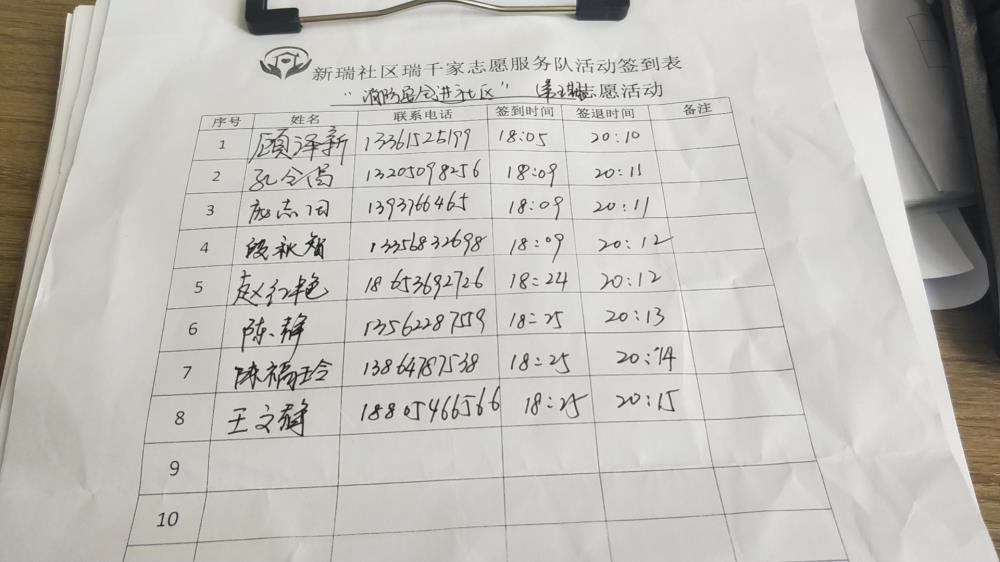 新瑞社区瑞千家志愿服务队活动签到表
"消防安全进社区" 志愿活动
序号 姓名 联系电话 签到时间 签退时间 备注
1 顾泽新 13361525199 18:05 20:10
2 孔令 13205098256 18:09 20:11
3 志 1393766465 18:09 20:11
4 段秋智 13356832698 18:09 20:12
5 赵红艳 18653692726 18:24 20:12
6 陈静 13562287559 18:25 20:13
7 陈福玲 13864787538 18:25 20:14
8 王文静 18805466566 18:25 20:15
9
10